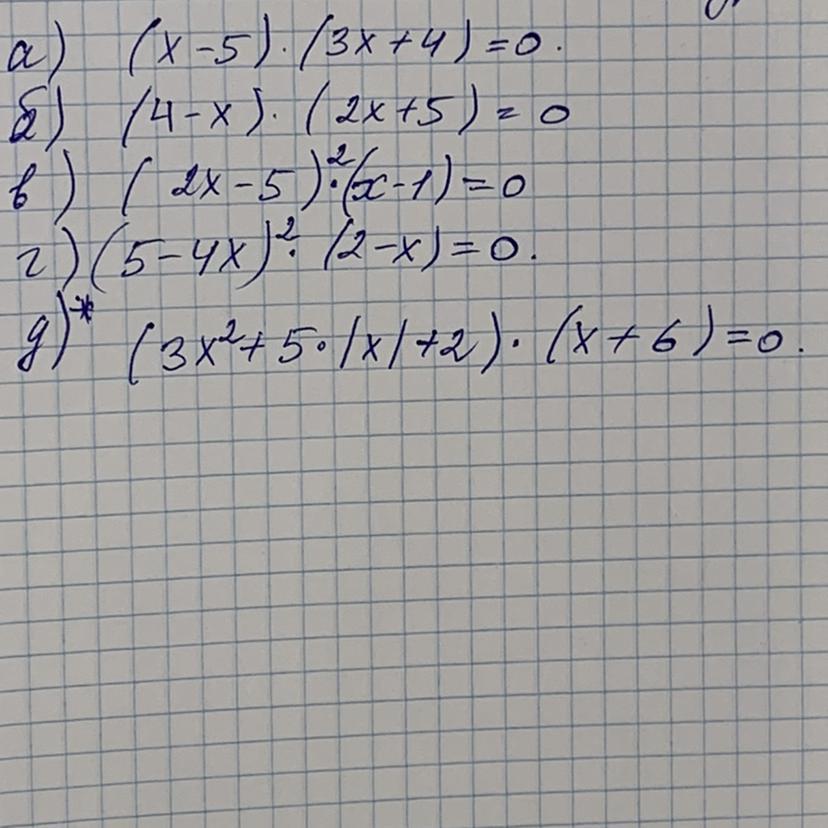 а) (x-5)·(3x+4)=0.
б) (4-x)·(2x+5)=0
в) (2x-5)²·(x-1)=0
г) (5-4x)²·(2-x)=0.
д)* (3x²+5·|x|+2)·(x+6)=0.